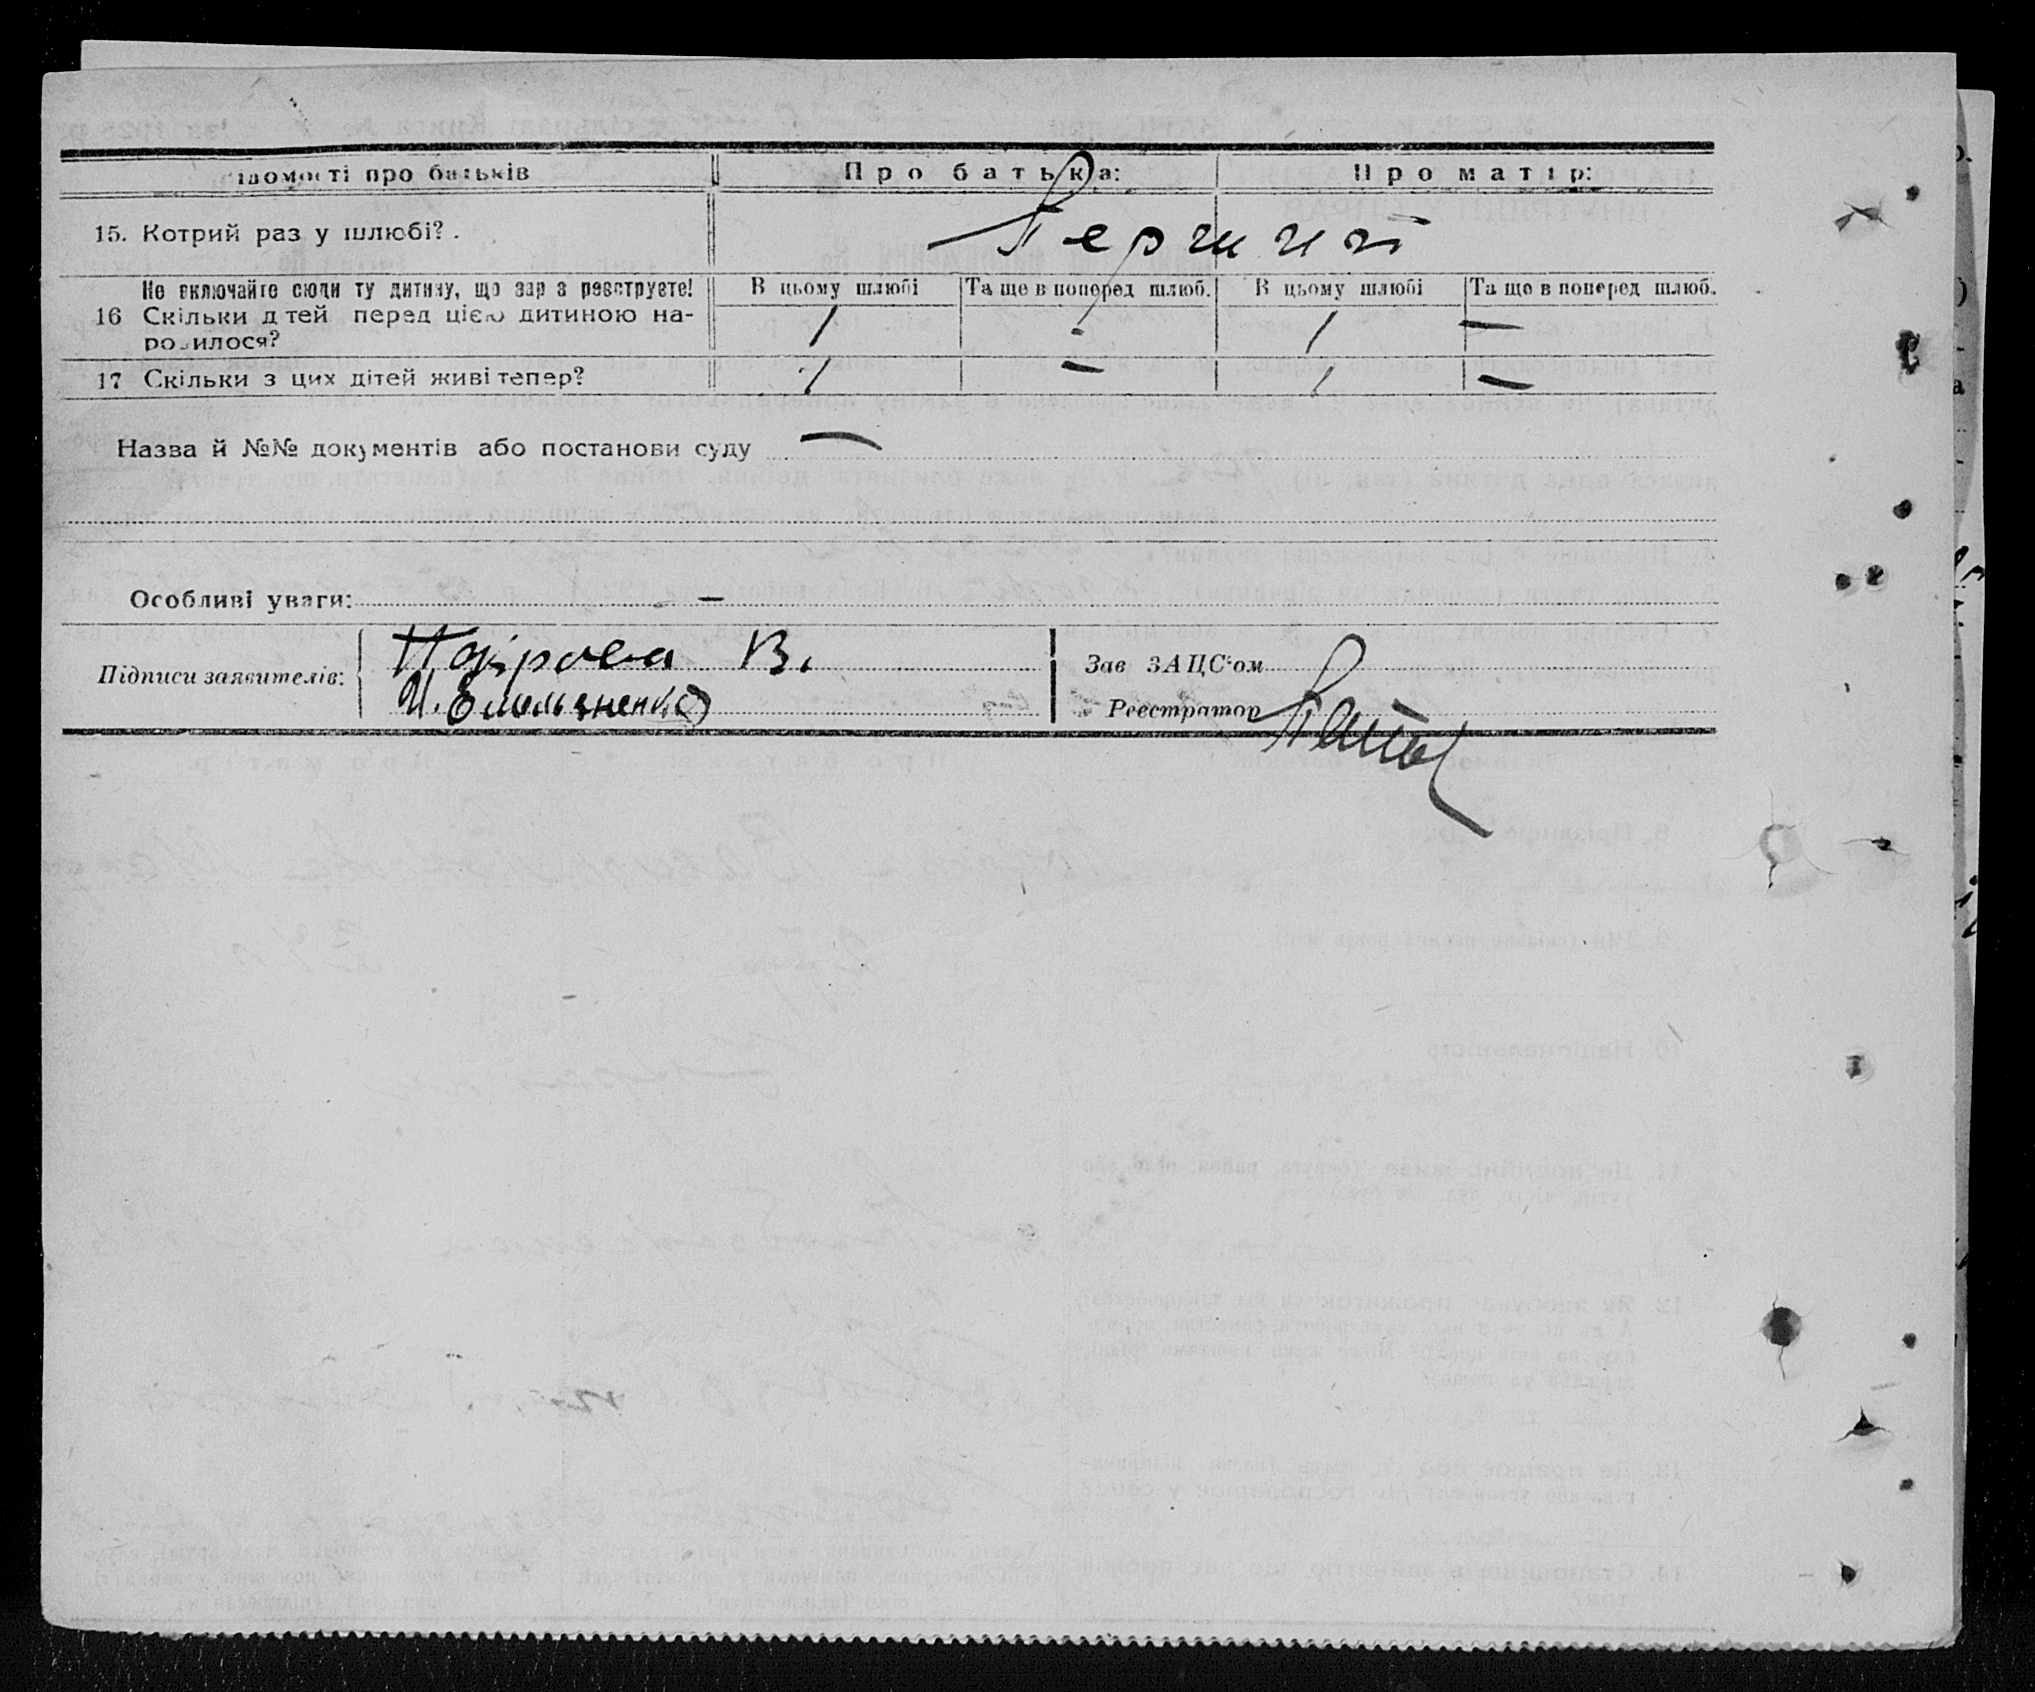 Відомості про батьків Про батька: Про матір:
15. Котрий раз у шлюбі? . Перший
Не включайте сюди ту дитину, що зараз реєструєте! В цьому шлюбі Та ще в поперед шлюб. В цьому шлюбі Та ще в поперед шлюб.
16 Скільки дітей перед цією дитиною на-
родилося? 1 - 1 —
17 Скільки з цих дітей живі тепер? 1 — 1 —
Назва й №№ документів або постанови суду —
Особливі уваги: —
Підписи заявителів: В. Зав ЗАЦС'ом
И. Емельяненко Реєстратор